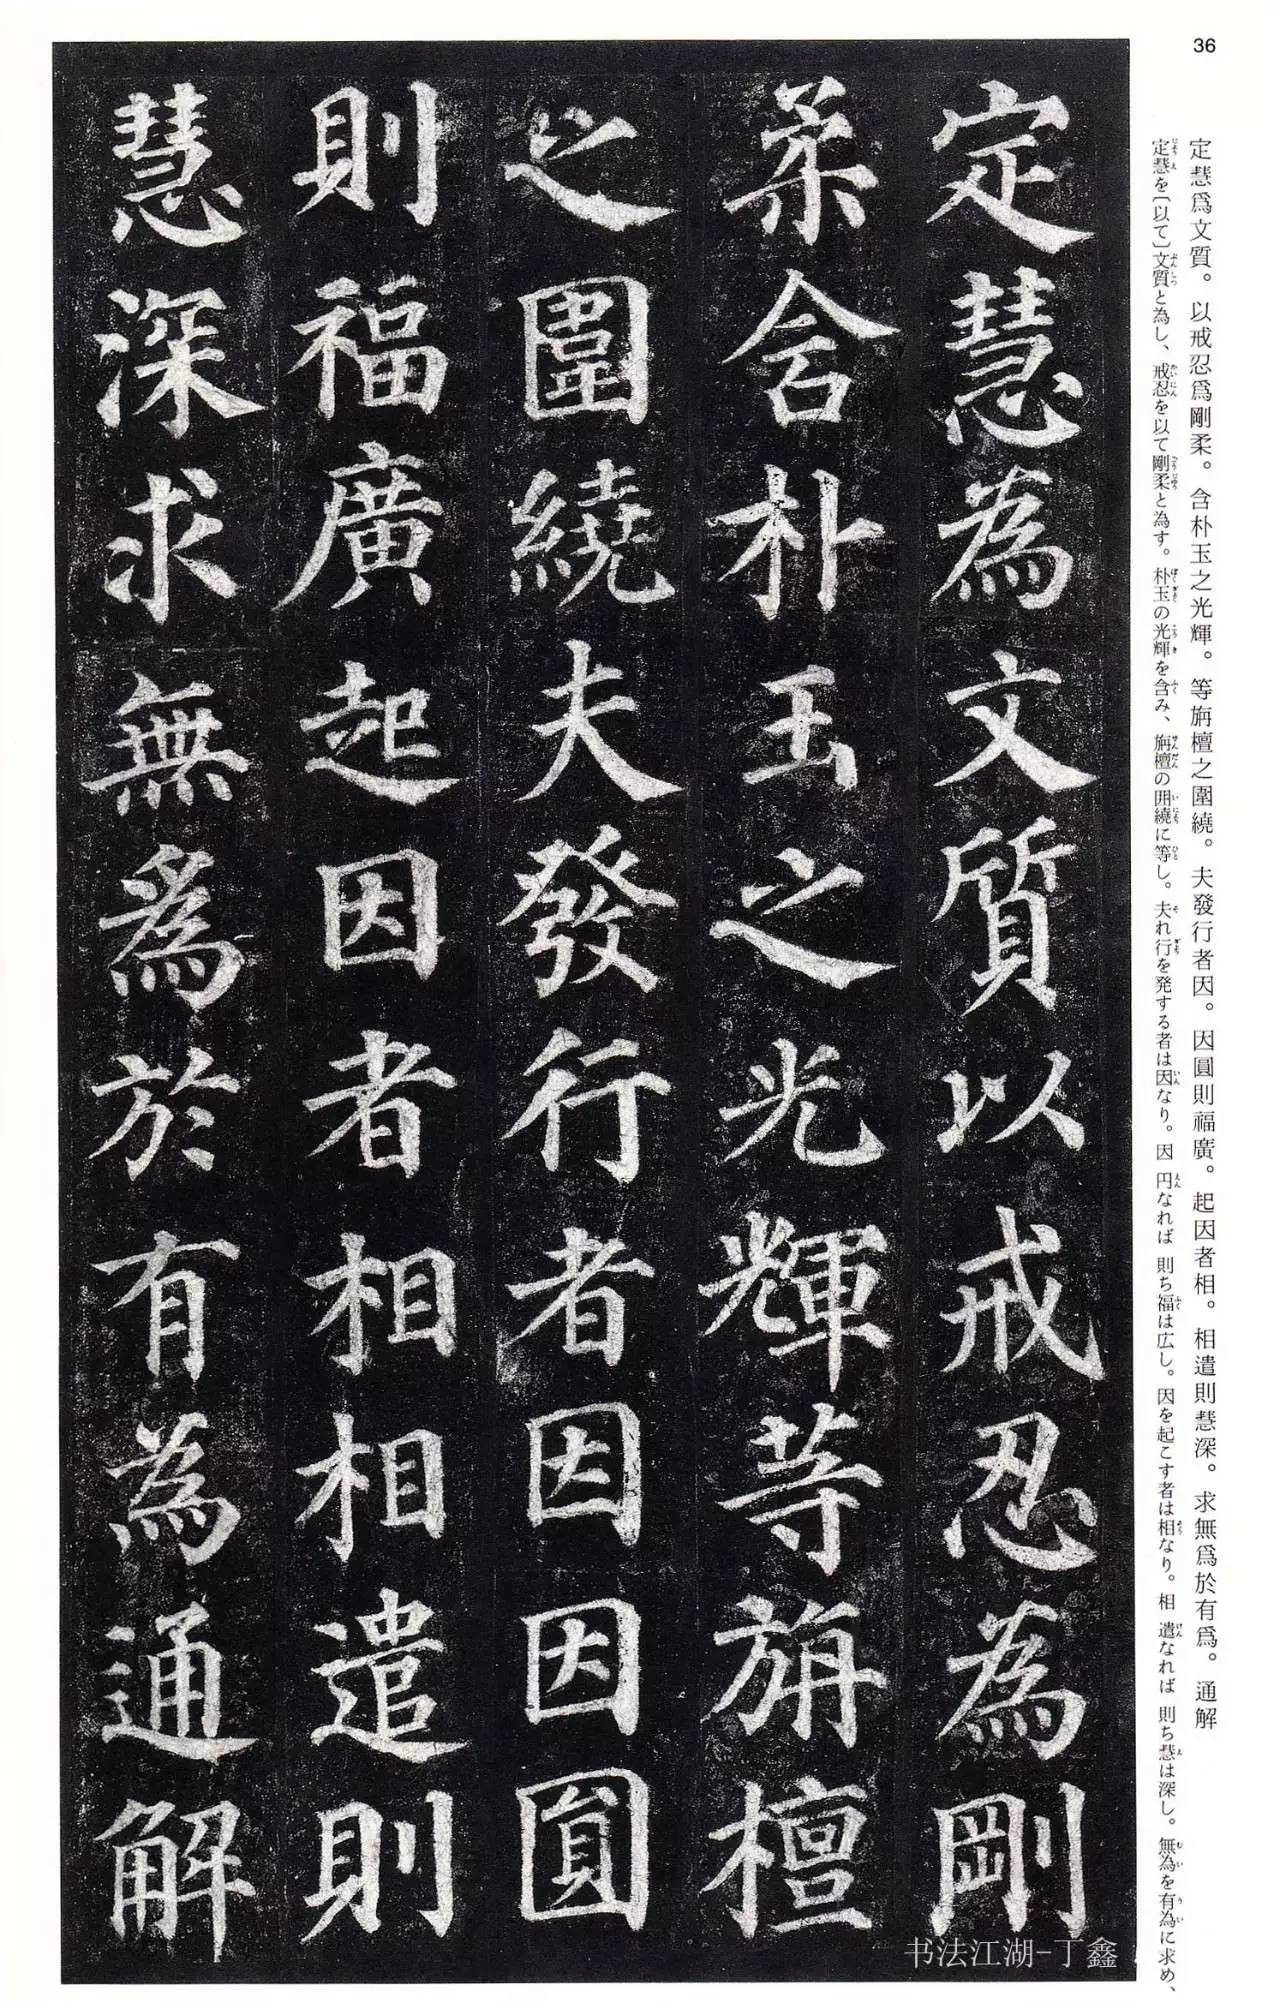 36
定慧爲文質。以戒忍爲剛柔。含朴玉之光輝。等旃檀之圍繞。夫發行者因。因圓則福廣。起因者相。相遣則慧深。求無爲於有爲。通解
定慧を〔以て〕文質と為し、戒忍を以て剛柔と為す。朴玉の光輝を含み、旃檀の囲繞に等し。夫れ行を発する者は因なり。因 円なれば 則ち福は広し。因を起こす者は相なり。相 遣なれば 則ち慧は深し。無為を有為に求め、
定慧為文質以戒忍為剛
柔含朴玉之光輝等旃檀
之圍繞夫發行者因因圓
則福廣起因者相相遣則
慧深求無爲於有為通解
书法江湖-丁鑫